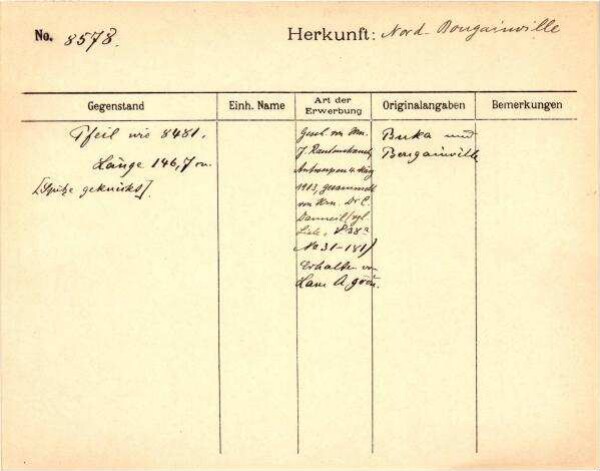 No. 8578.
Herkunft: Nord-Bougainville
Gegenstand
Einh. Name
Art der Erwerbung
Originalangaben
Bemerkungen
Pfeil wie 8481.
Länge 146,7 cm.
[Spitze geknickt].
Gesch. von Hrn.
J.
Antwerpen
1913, gesammelt
von Hrn. Dr. C.
Danneil (vgl.
Liste,
No 31-181)
Erhalten von
Buka und
Bougainville